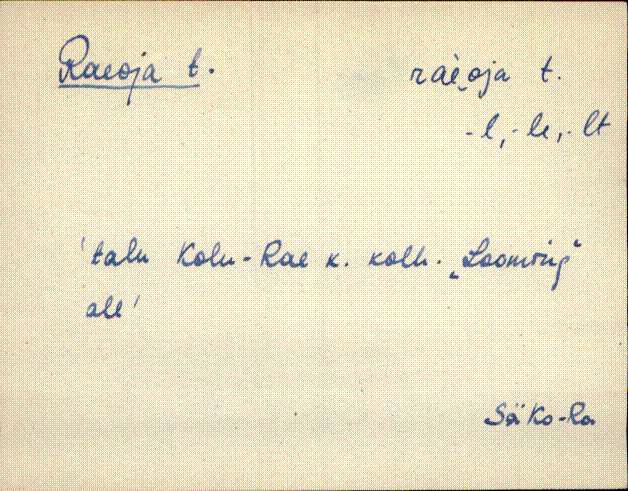 Raeoja t. raè‿oja t.
-l, -le, -lt
'talu Kolu-Rae k. kolh. „Looming“
all'
Sä Ko-Ra